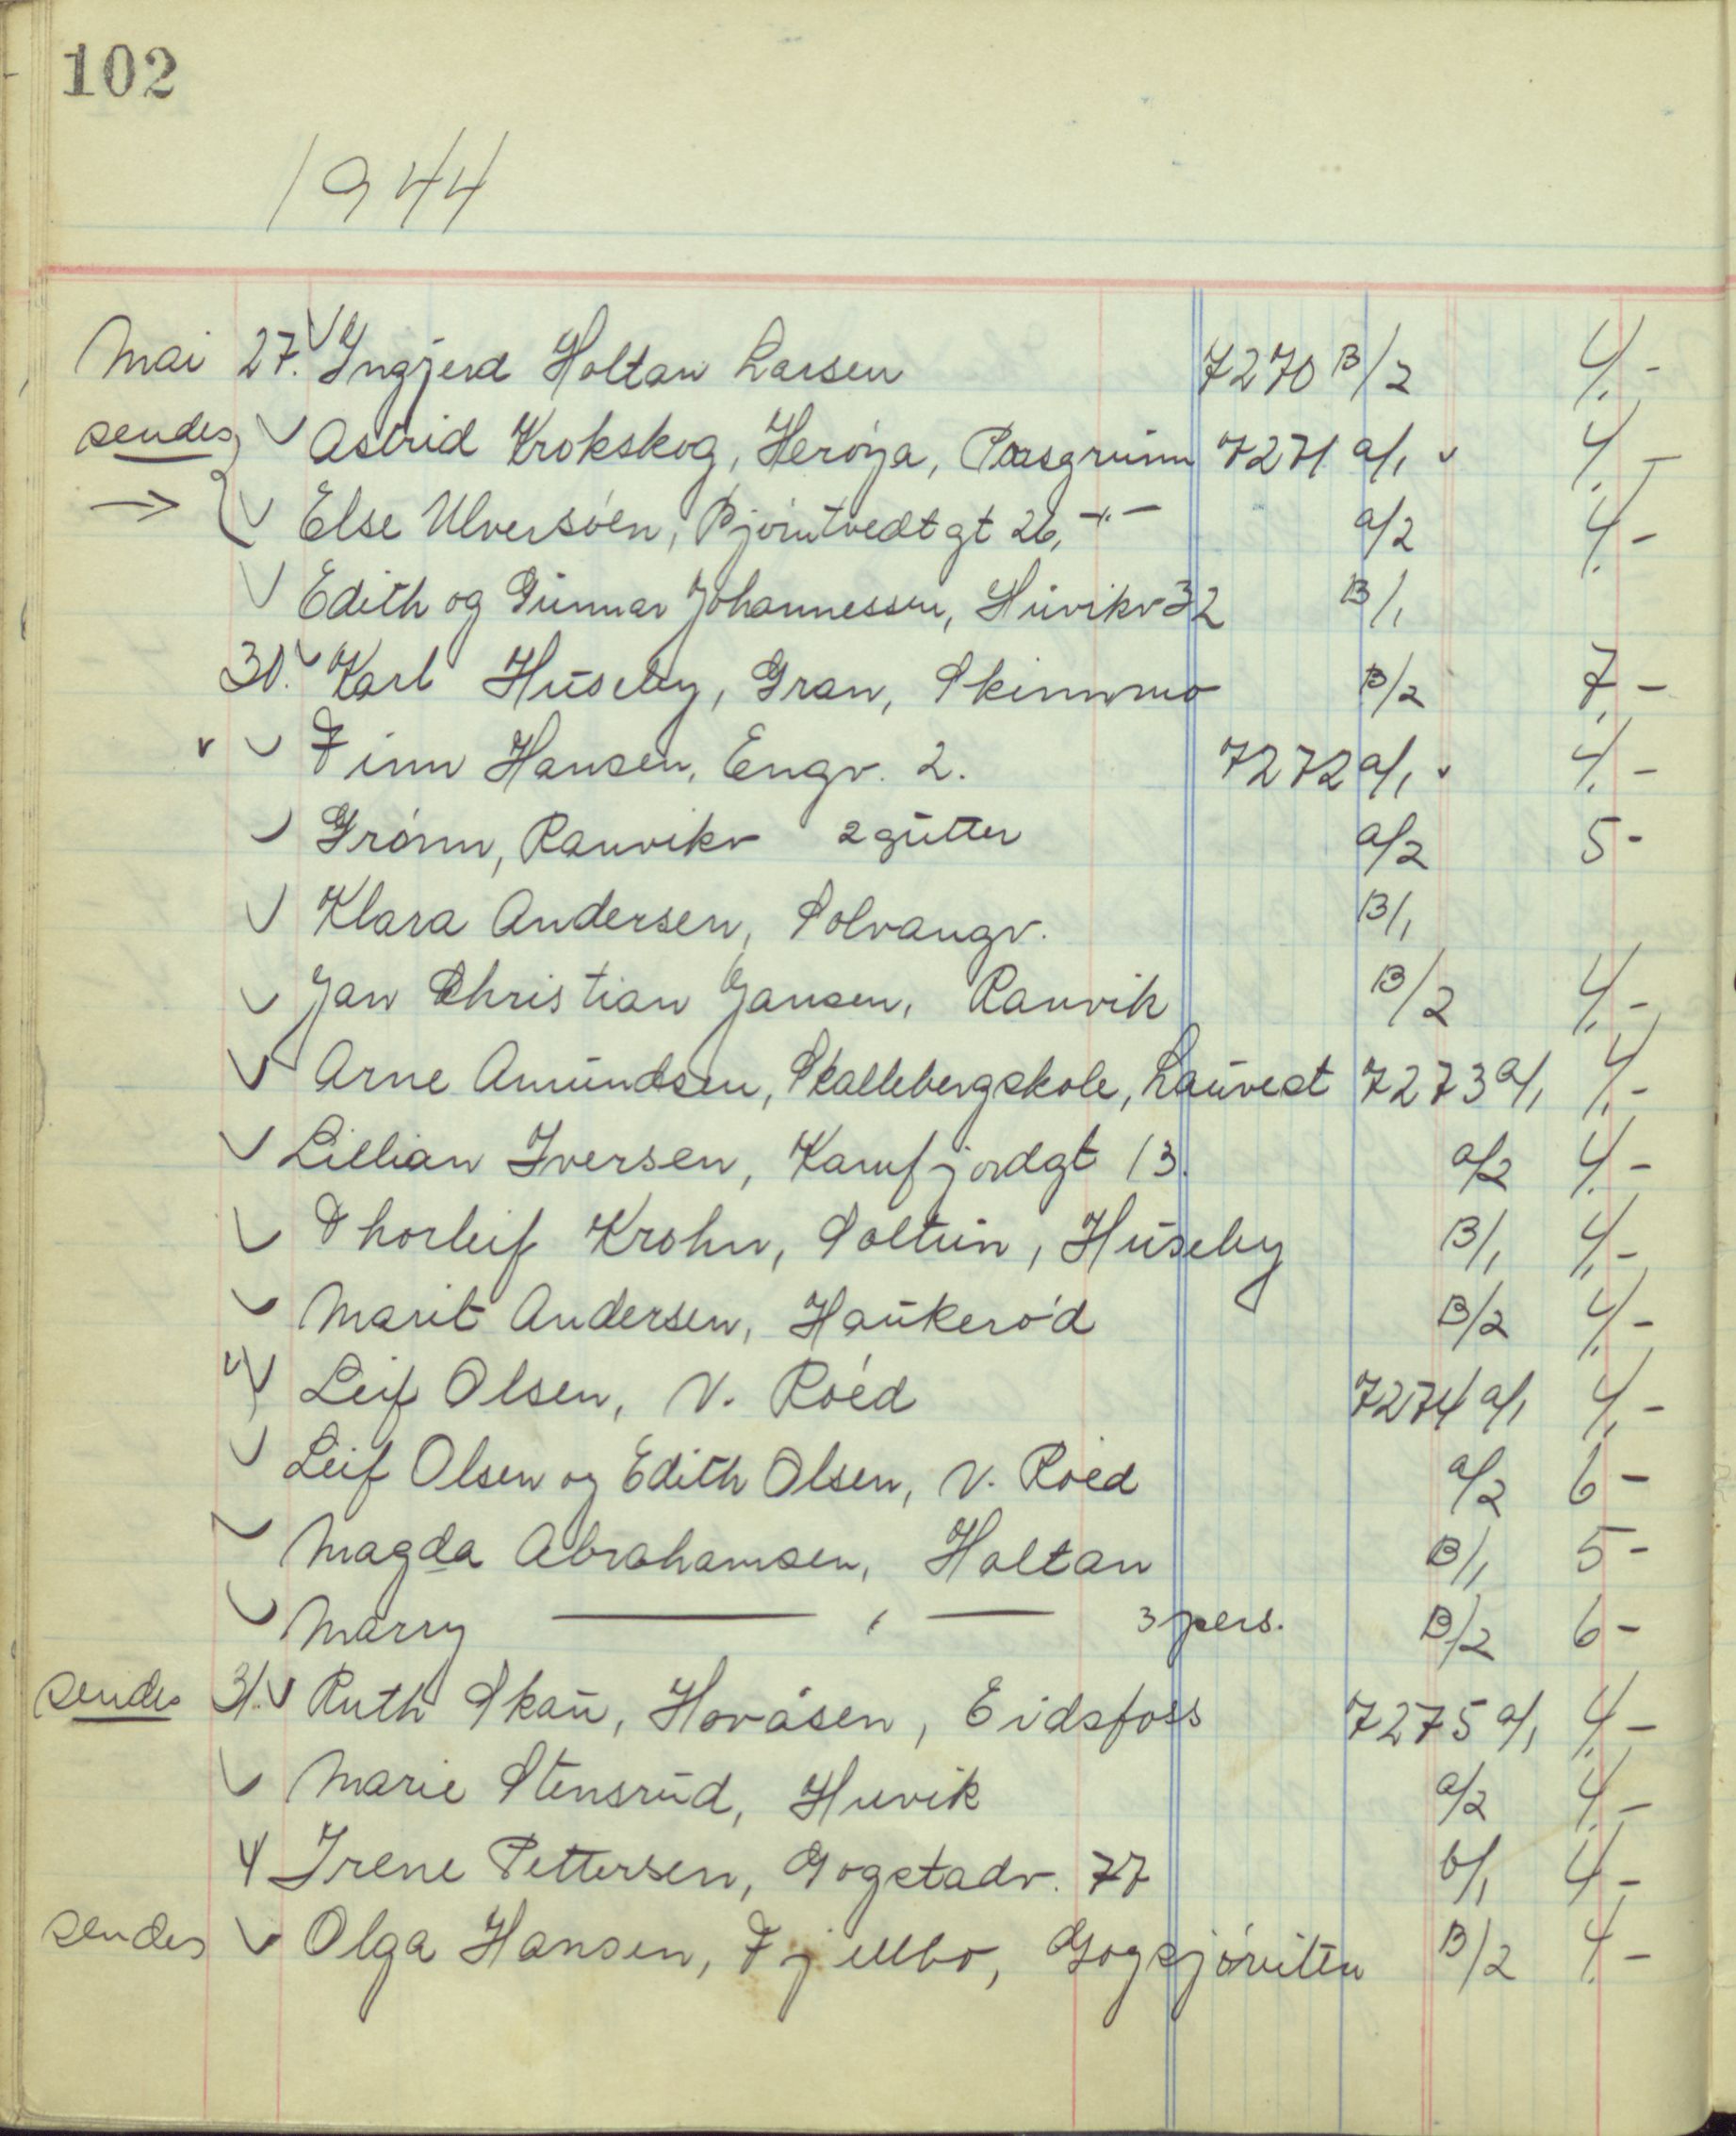 102
1944
Mai 27. Ingjerd Holtan Larsen 7270 B/2 4,-
sendes Astrid Krokskog, Herøya, Porsgrunn 7271 a/1 4,-
Else Ulversøen, Bjørntvedtgt 26, -"- a/2 4,-
Edith og Gunnar Johannessen, Huvikv 32 B/1
30. Karl Huseby, Gran, Skinnmo B/2 7,-
Finn Hansen, Engv. 2. 7272 a/1 4,-
Grønn, Ranvikv 2 gutter a/2 5-
Klara Andersen, Solvangv. B/1
Jan Christian Jansen, Ranvik B/2 4,-
Arne Amundsen, Skallebergskole, Lauvest 7273 a/1 4,-
Lillian Iversen, Kamfjordgt 13. a/2 4,-
Thorleif Krohn, Soltun, Huseby B/1 4,-
Marit Andersen, Haukerød B/2 4,-
Leif Olsen, V. Røed 7274 a/1 4,-
Leif Olsen og Edith Olsen, V. Røed a/2 6-
Magda Abrahamsen, Holtan B/1 5-
Marry —— , — 3 pers. B/2 6-
sendes 31. Ruth Skau, Hovåsen, Eidsfoss 7275 a/1 4,-
Marie Stensrud, Huvik a/2 4,-
Irene Pettersen, Gogstadv. 77 b/1 4-
sendes Olga Hansen, Fjellbo, B/2 4,-